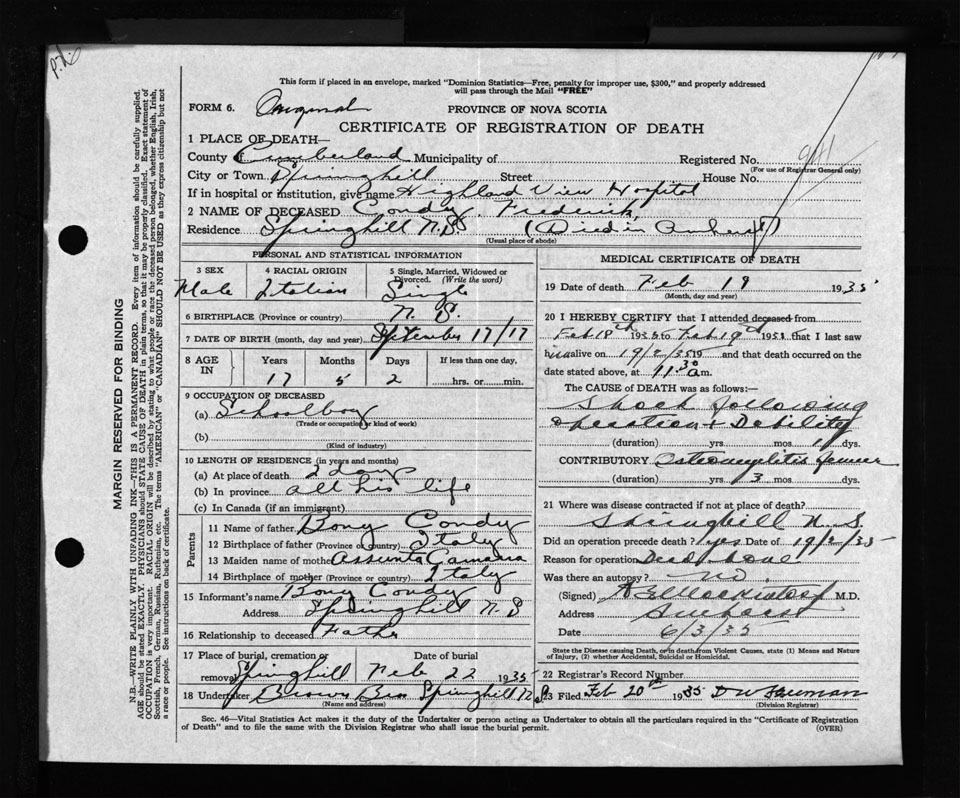 This form if placed in an envelope, marked "Dominion Statistics—Free, penalty for improper use, $300," and properly addressed
will pass through the Mail "FREE"
FORM 6. Original PROVINCE OF NOVA SCOTIA
CERTIFICATE OF REGISTRATION OF DEATH
1 PLACE OF DEATH—
County Cumberland Municipality of Registered No. 941
(For use of Registrar General only)
City or Town Springhill Street House No.
If in hospital or institution, give name Highland View Hospital
2 NAME OF DECEASED Condy, Frederick
Residence Springhill N.S. (Died in Amherst)
(Usual place of abode)
PERSONAL AND STATISTICAL INFORMATION
3 SEX 4 RACIAL ORIGIN 5 Single, Married, Widowed or Divorced. (Write the word)
Male Italian Single
6 BIRTHPLACE (Province or country) N.S.
7 DATE OF BIRTH (month, day and year) September 17/17
8 AGE IN Years Months Days If less than one day,
17 5 2 hrs. or min.
9 OCCUPATION OF DECEASED
(a) Schoolboy
(Trade or occupation or kind of work)
(b)
(Kind of industry)
10 LENGTH OF RESIDENCE (in years and months)
(a) At place of death 2 days
(b) In province all his life
(c) In Canada (if an immigrant)
Parents
11 Name of father Bony Condy
12 Birthplace of father (Province or country) Italy
13 Maiden name of mother Assunta
14 Birthplace of mother (Province or country) Italy
15 Informant's name Bony Condy
Address Springhill N.S
16 Relationship to deceased Father
17 Place of burial, cremation or removal Date of burial
Springhill Feb 22 1935
18 Undertaker Brown Bros Springhill N.S.
(Name and address)
MEDICAL CERTIFICATE OF DEATH
19 Date of death Feb 19 1935
(Month, day and year)
20 I HEREBY CERTIFY that I attended deceased from
Feb 18th 1935 to Feb 19th 1935 that I last saw
him alive on 19/2/35 19 and that death occurred on
date stated above, at 11.30 a.m.
The CAUSE OF DEATH was as follows:—
Shock following
operation & Debility
(duration) yrs. mos. 1 dys.
CONTRIBUTORY Osteomyelitis femur
(duration) yrs. 3 mos. dys.
21 Where was disease contracted if not at place of death?
Springhill N.S.
Did an operation precede death? yes Date of 19/2/35
Reason for operation Dead bone
Was there an autopsy? no.
(Signed) M.D.
Address Amherst
Date 6/3/35
State the Disease causing Death, or in death from Violent Causes, state (1) Means and Nature
of Injury, (2) whether Accidental, Suicidal or Homicidal.
22 Registrar's Record Number
23 Filed Feb 20th 1935 D W
(Division Registrar)
Sec. 46—Vital Statistics Act makes it the duty of the Undertaker or person acting as Undertaker to obtain all the particulars required in the "Certificate of Registration
of Death" and to file the same with the Division Registrar who shall issue the burial permit. (OVER)
MARGIN RESERVED FOR BINDING
N.B.—WRITE PLAINLY WITH UNFADING INK—THIS IS A PERMANENT RECORD. Every item of information should be carefully supplied.
AGE should be stated EXACTLY. PHYSICIANS should STATE CAUSE OF DEATH in plain terms, so that it may be properly classified. Exact statement of
OCCUPATION is very important. RACIAL ORIGIN will be described by stating to what people or race the deceased person belonged, whether English, Irish,
Scottish, French, German, Russian, Ruthenian, etc. The terms "AMERICAN" or "CANADIAN" SHOULD NOT BE USED as they express citizenship but not
a race or people. See instructions on back of certificate.